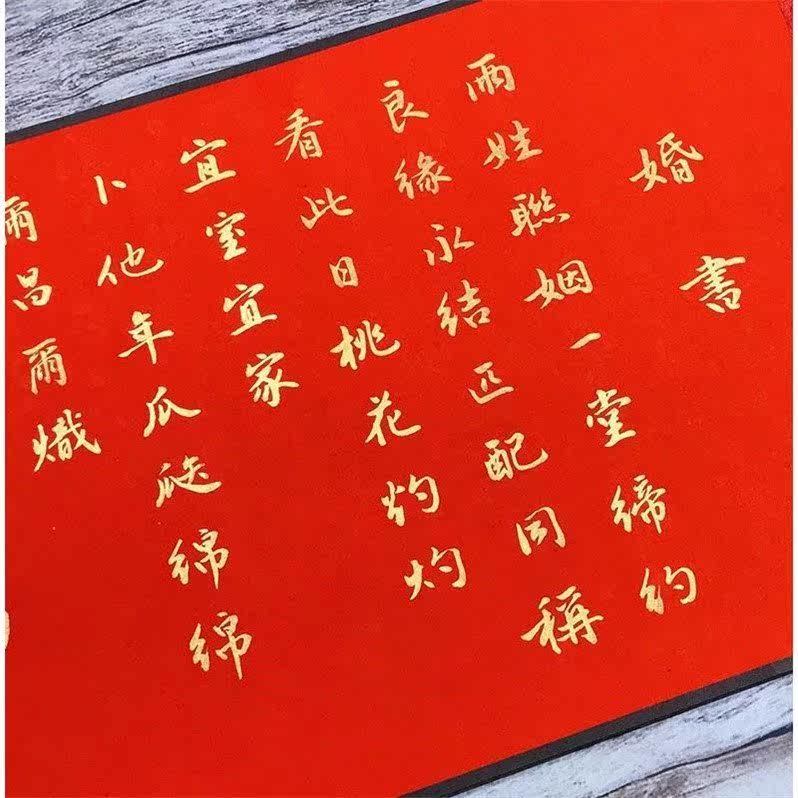 婚書
兩姓聯姻一堂締約
良緣永結匹配同稱
看此日桃花灼灼
宜室宜家
卜他年瓜瓞綿綿
爾昌爾熾